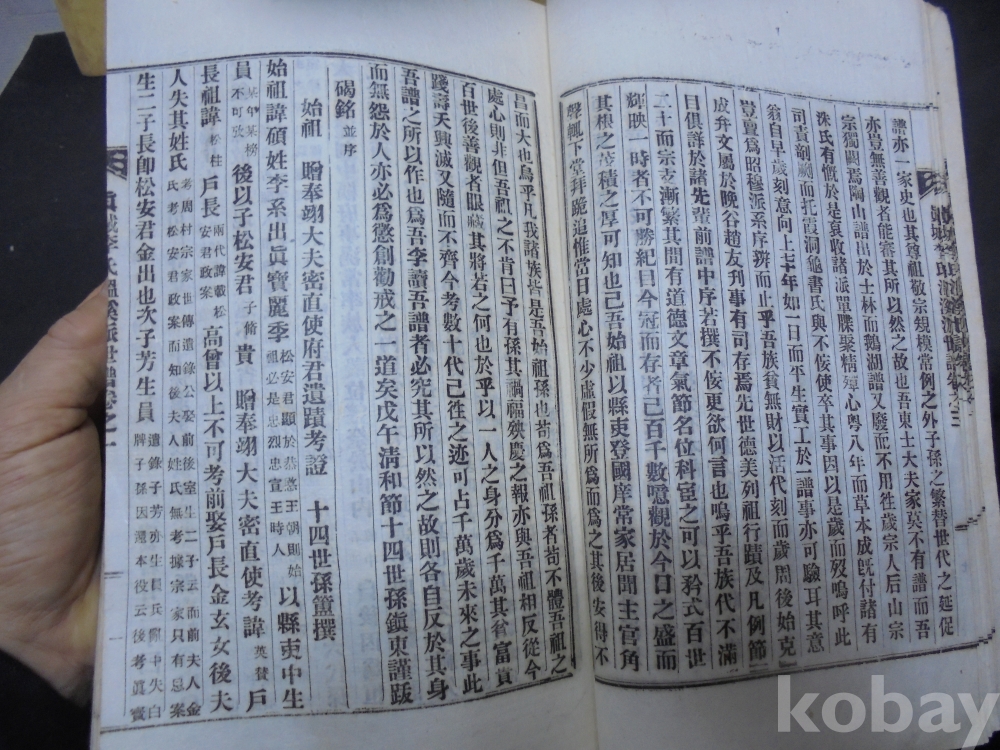 譜亦一家史也其尊祖敬宗規模常例之外子孫之繁替世代之延促
亦豈無善觀者能審其所以然之故也吾東士大夫家莫不有譜而吾
宗獨闕焉陶山譜出於士林而鵝湖譜又廢而不用徃歲宗人后山宗
洙氏有慨於是裒收諸派單牒聚精短心粤八年而草本成旣付諸有
司責剞劂而托霞洞龜書氏與不侫使卒其事因以是歲而歿嗚呼此
翁自早歲刻意向上七十年如一日而平生實工於一譜事亦可驗耳其意
豈亶爲昭穆派系序辨而止乎吾族貧無財以活代刻而歲周後始克
成弁文屬於晚谷趙友刋事有司存焉先世德美列祖行蹟及凡例節
目俱詳於諸先輩前譜中序若撰不侫更欲何言也嗚乎吾族代不滿
二十而宗支漸繁其間有道德文章氣節名位科宦之可以矜式百世
輝映一時者不可勝紀目今冠而存者已百千數噫觀於今日之盛而
其根之茂積之厚可知也已吾始祖以縣吏登國庠常家居聞主官角
聲輒下堂拜跪追惟當日處心不少虛假無所爲而爲之其後安得不
昌而大也烏乎凡我諸族皆是吾始祖孫也苟爲吾祖孫者苟不體吾祖之
處心則非但吾祖之不肯曰予有孫其禍福殃慶之報亦與吾祖相反從今
百世後善觀者眼藏其將若之何也於乎以一人之身分爲千萬其貧富貴
賤壽夭興滅又隨而不齊今考數十代已徃之迹可占千萬歲未來之事此
吾譜之所以作也爲吾李讀吾譜者必究其所以然之故則各自反於其身
而無怨於人亦必爲懲創勸戒之一道矣戊午淸和節十四世孫鎭東謹跋
碣銘 並序
始祖 贈奉翊大夫密直使府君遺蹟考證 十四世孫 撰
始祖諱碩姓李系出眞寶麗季 松安君顯於恭愍王朝則始祖必是忠烈忠宣王時人 以縣吏中生
員 某年某榜不可攷 後以子松安君 子脩 貴 贈奉翊大夫密直使考諱 英賛 戶
長祖諱 松柱 戶長 兩代諱載松安君政案 高曾以上不可考前娶戶長金玄女後夫
人失其姓氏 考周村宗家世傳遺錄公娶前後室生二子云而前夫人金氏考松安君政案而知後夫人姓氏無考據宗家只有忌案
生二子長卽松安君金出也次子芳生員
眞城李氏溫溪派世譜卷之一